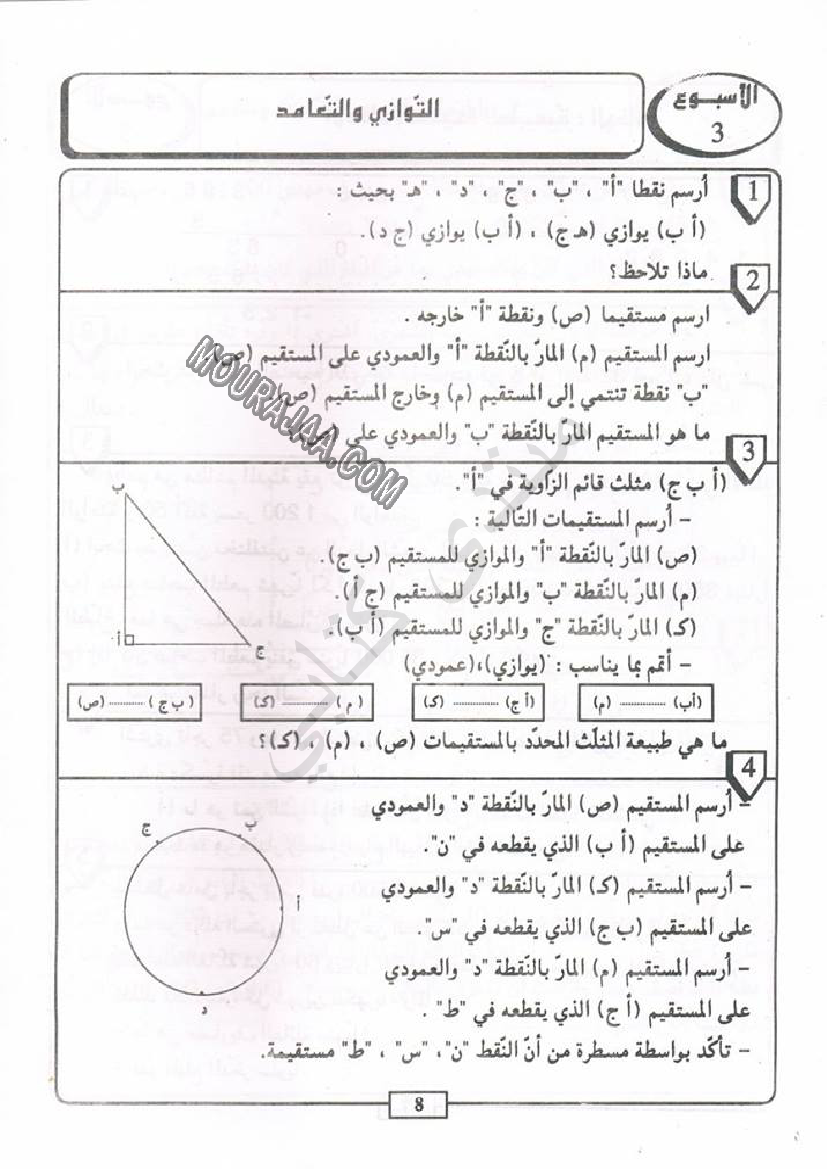 الأسبوع
3
التّوازي والتّعامد
1
أرسم نقطا "أ" ، "ب" ، "ج" ، "د" ، "هـ" بحيث :
(أ ب) يوازي (هـ ج) ، (أ ب) يوازي (ج د).
ماذا تلاحظ؟
2
ارسم مستقيما (ص) ونقطة "أ" خارجه .
ارسم المستقيم (م) المارّ بالنّقطة "أ" والعمودي على المستقيم (ص).
"ب" نقطة تنتمي إلى المستقيم (م) وخارج المستقيم (ص).
ما هو المستقيم المارّ بالنّقطة "ب" والعمودي على (ص)
MOURAJAA.COM
منتدى كتابي
3
(أ ب ج) مثلث قائم الزّاوية في "أ".
– أرسم المستقيمات التّالية :
(ص) المارّ بالنّقطة "أ" والموازي للمستقيم (ب ج).
(م) المارّ بالنّقطة "ب" والموازي للمستقيم (ج أ).
(كـ) المارّ بالنّقطة "ج" والموازي للمستقيم (أ ب).
– أتمّم بما يناسب : (يوازي)،(عمودي)
ب
أ
ج
(أب) ............... (م)
(أ ج) ............... (كـ)
( م ) ............... (كـ)
( ب ج ) ............ (ص)
ما هي طبيعة المثلّث المحدّد بالمستقيمات (ص) ، (م) ، (كـ)؟
4
– أرسم المستقيم (ص) المارّ بالنّقطة "د" والعمودي
على المستقيم (أ ب) الذي يقطعه في "ن".
– أرسم المستقيم (كـ) المارّ بالنّقطة "د" والعمودي
على المستقيم (ب ج) الذي يقطعه في "س".
– أرسم المستقيم (م) المارّ بالنّقطة "د" والعمودي
على المستقيم (أ ج) الذي يقطعه في "ط" .
– تأكّد بواسطة مسطرة من أنّ النّقط "ن"، "س" ، "ط" مستقيمة.
ج
ب
أ
د
8